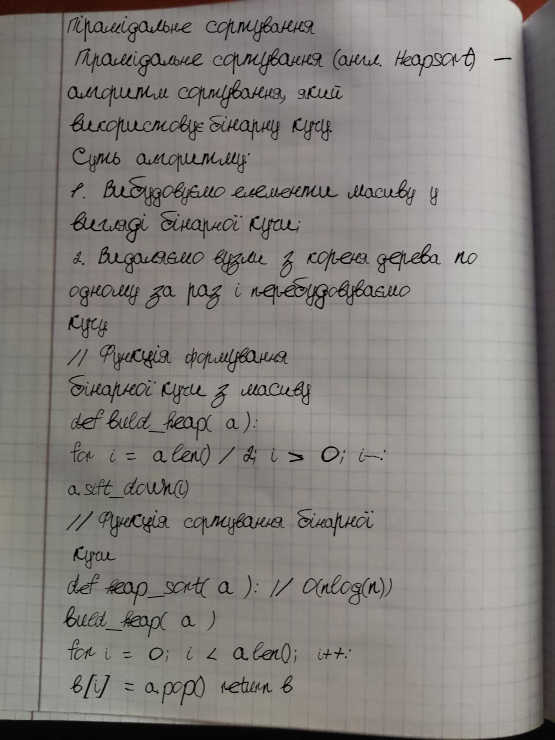 Пірамідальне сортування
Пірамідальне сортування (англ. Heapsort) —
алгоритм сортування, який
використовує бінарну кучу.
Суть алгоритму:
1. Вибудовуємо елементи масиву у
вигляді бінарної кучи;
2. Видаляємо вузли з кореня дерева по
одному за раз і перебудовуваємо
кучу
// Функція формування
бінарної кучи з масиву
def build_heap( a ):
for i = a.len() / 2; i > 0; i--:
a.sift_down(i)
// Функція сортування бінарної
кучи
def heap_sort( a ): // O(nlog(n))
build_heap( a )
for i = 0; i < a.len(); i++:
b[i] = a.pop() return b